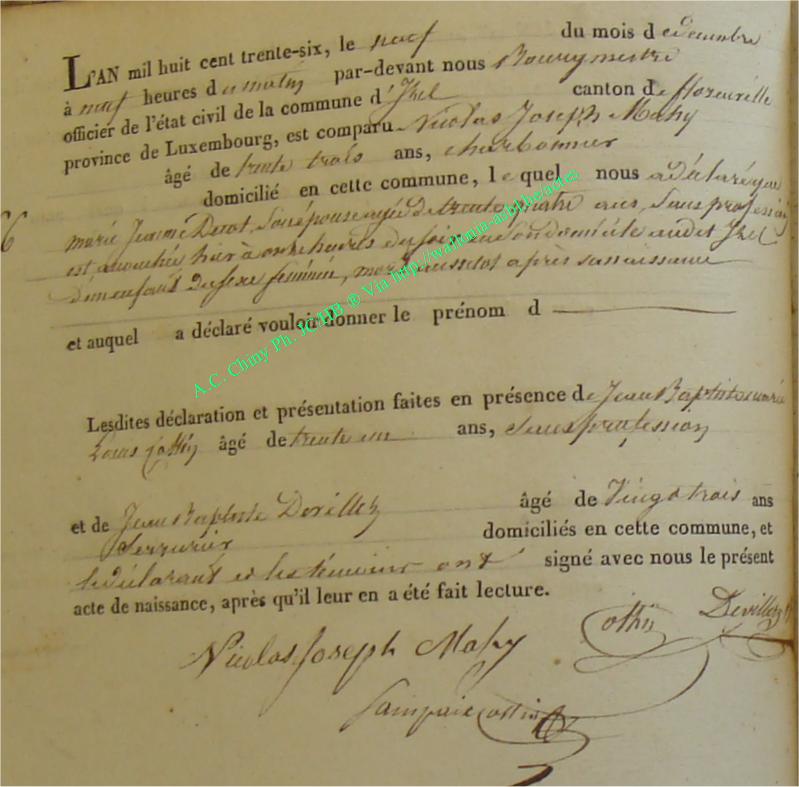 L'AN mil huit cent trente-six, le neuf du mois de decembre
à neuf heures du matin par-devant nous Bourgmestre
officier de l'état civil de la commune d'Izel canton de florenville
province de Luxembourg, est comparu Nicolas Joseph Mahy
âgé de trente trois ans, charbonnier
domicilié en cette commune, lequel nous a déclaré que
6
marie Jeanne son épouse agée de trente quatre ans, sans profession
est accouchée hier à onze heures du soir en son domicile audit Izel
d'un enfant du sexe féminin, mort aussitot après sa naissance
et auquel a déclaré vouloir donner le prénom d
A.C. Chiny Ph. ICHB ® Via http://wallonia-arbl.be/actes
Lesdites déclaration et présentation faites en présence de Jean Baptiste marie
Louis Cottin âgé de trente un ans, sans profession
et de Jean Baptiste Devillez âgé de Vingt trois ans
Serrurier domiciliés en cette commune, et
le déclarant et les témoins ont signé avec nous le présent
acte de naissance, après qu'il leur en a été fait lecture.
Nicolas Joseph Mahy Cottin Devillez
Cottin